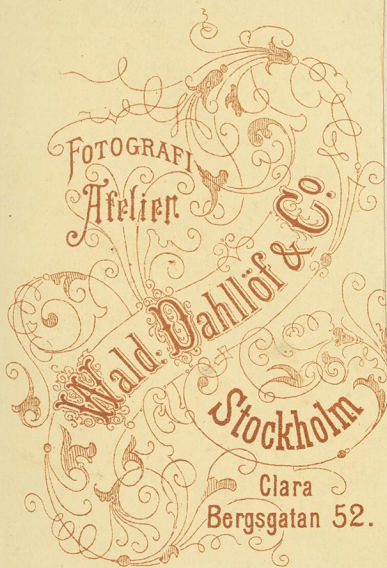 FOTOGRAFI
Atelier
Wald. Dahllöf & Co.
Stockholm
Clara
Bergsgatan 52.